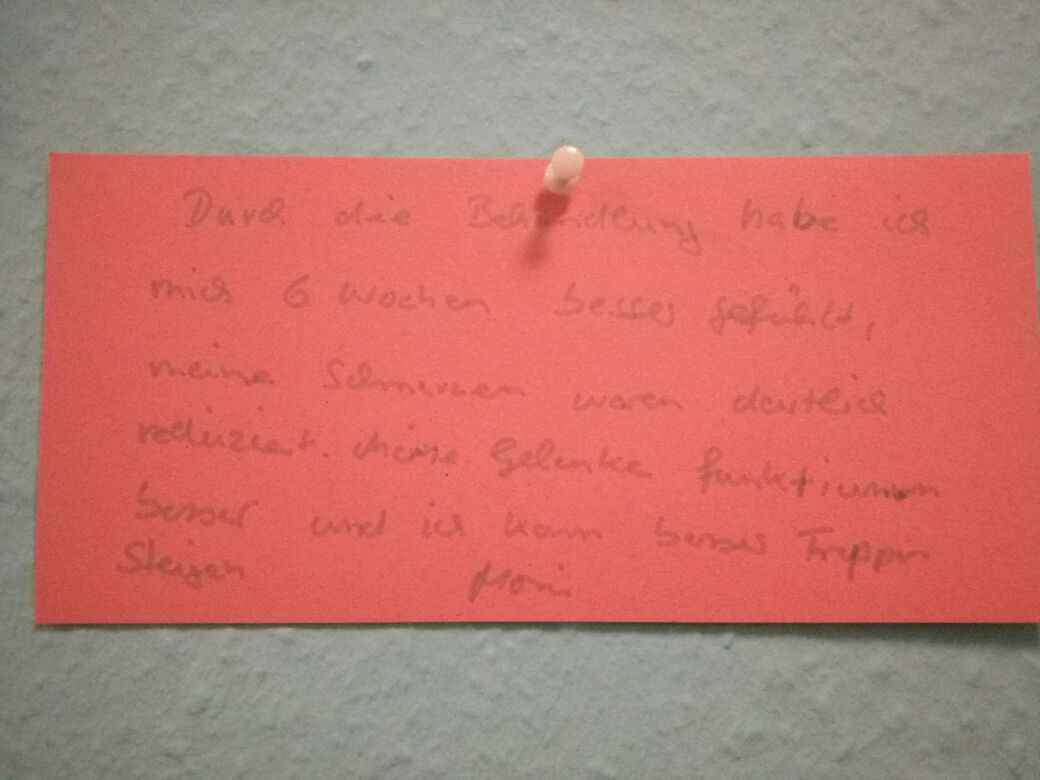 Durch die Behandlung habe ich
mich 6 Wochen besser gefühlt,
meine Schmerzen waren deutlich
reduziert. Meine Gelenke funktionieren
besser und ich kann besser Treppen
Steigen